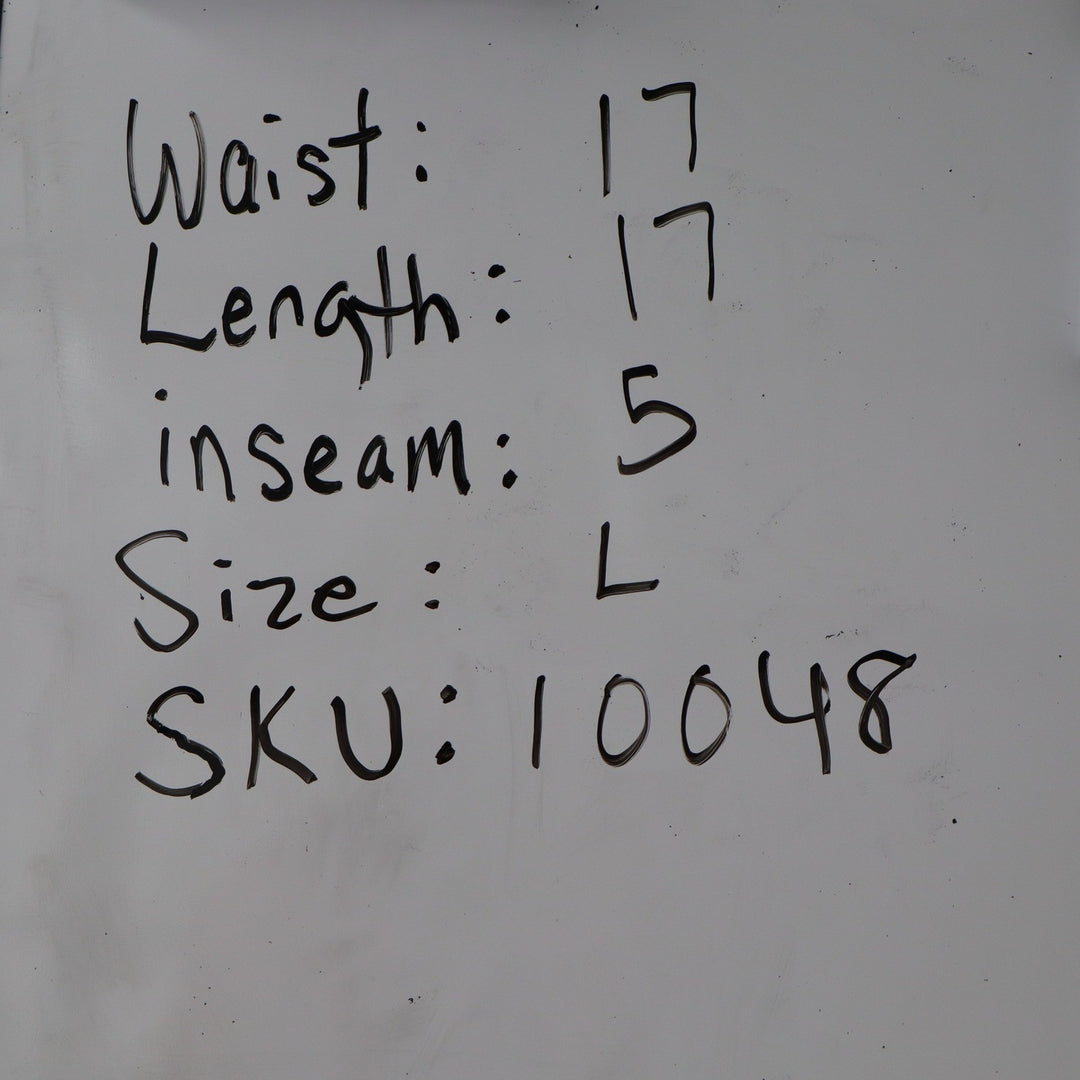 Waist: 17
Length: 17
inseam: 5
Size: L
SKU: 10048